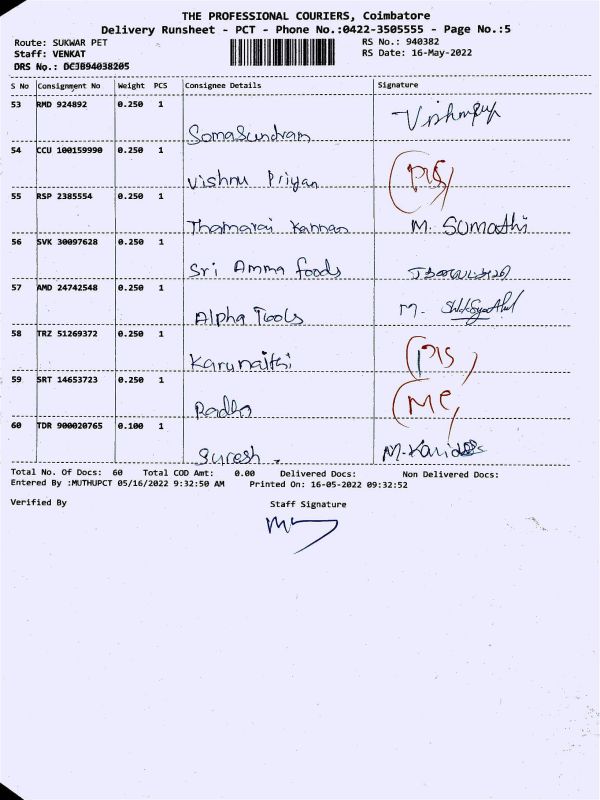 THE PROFESSIONAL COURIERS, Coimbatore
Delivery Runsheet - PCT - Phone No.:0422-3505555 - Page No.:5
Route: SUKWAR PET RS No.: 940382
Staff: VENKAT RS Date: 16-May-2022
DRS No.: DCJB94038205
S No Consignment No Weight PCS Consignee Details Signature
53 RMD 924892 0.250 1
SomaSundram
54 CCU 100159990 0.250 1
Vishnu Priyan
55 RSP 2385554 0.250 1
Thamarai Kannan M. Sumathi
56 SVK 30097628 0.250 1
Sri Amma foods
57 AMD 24742548 0.250 1
Alpha Tools M.
58 TRZ 51269372 0.250 1
Karunaithi
59 SRT 14653723 0.250 1
Radha
60 TDR 900020765 0.100 1
Suresh.
Total No. Of Docs: 60 Total COD Amt: 0.00 Delivered Docs: Non Delivered Docs:
Entered By :MUTHUPCT 05/16/2022 9:32:50 AM Printed On: 16-05-2022 09:32:52
Verified By Staff Signature